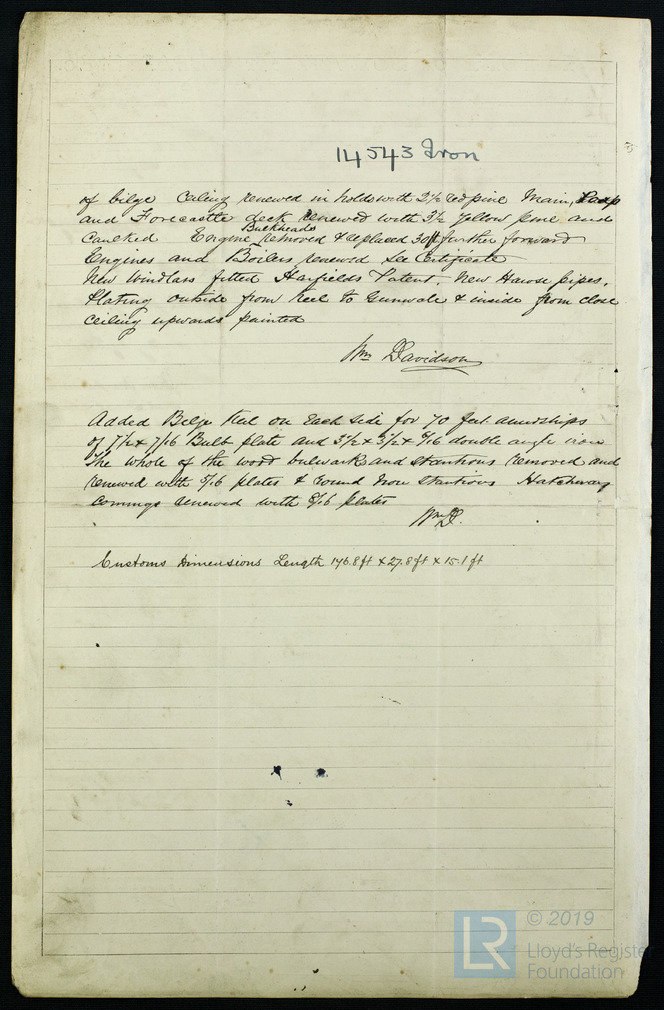 14543 Iron
3
of bilge Ceiling renewed in holds with 2½ red pine Main, Poop
and Forecastle deck renewed with 3½ yellow pine and
Caulked Engine Bulkheads removed & replaced 30ft further forward
Engines and Boilers renewed See Certificate
New Windlass fitted Harfields Patent, New Hawse pipes,
Plating outside from keel to Gunwale & inside from close
Ceiling upwards painted
Wm Davidson
Added Bilge Keel on Each side for 70 feet amidships
of 7½ x 7/16 Bulb plate and 3½ x 3½ x 6/16 double angle iron
The whole of the wood bulwarks and Stantions removed and
renewed with 5/16 plates & round Iron Stantions Hatchway
comings renewed with 6/16 plates
Wm D.
Customs Dimensions Length 196.8ft x 27.8ft x 15.1ft
LR © 2019
Lloyd's Register
Foundation